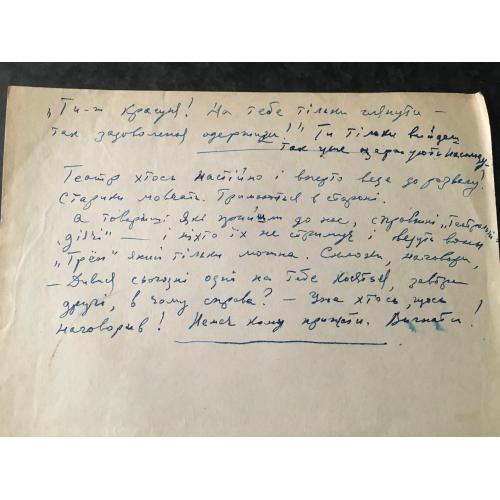 „Ти-ж красуня! На тебе тільки глянути –
так задоволення одержиш!" Ти тільки вийдеш
так уже
Театр хтось настійно і вперто веде до розвалу!
Старики мовчать. Тримаються в стороні.
А товариші які прийшли до нас, справжні „Театральні
діячі" — і ніхто їх не стримує і ведуть вони
„Трёп" який тільки можна. Сплетні, наговори,
– Дивися сьогодні одні на тебе косяться, завтра
другі, в чому справа? – Уже хтось, щось
наговорив! Нема кому прижати. Вигнати!